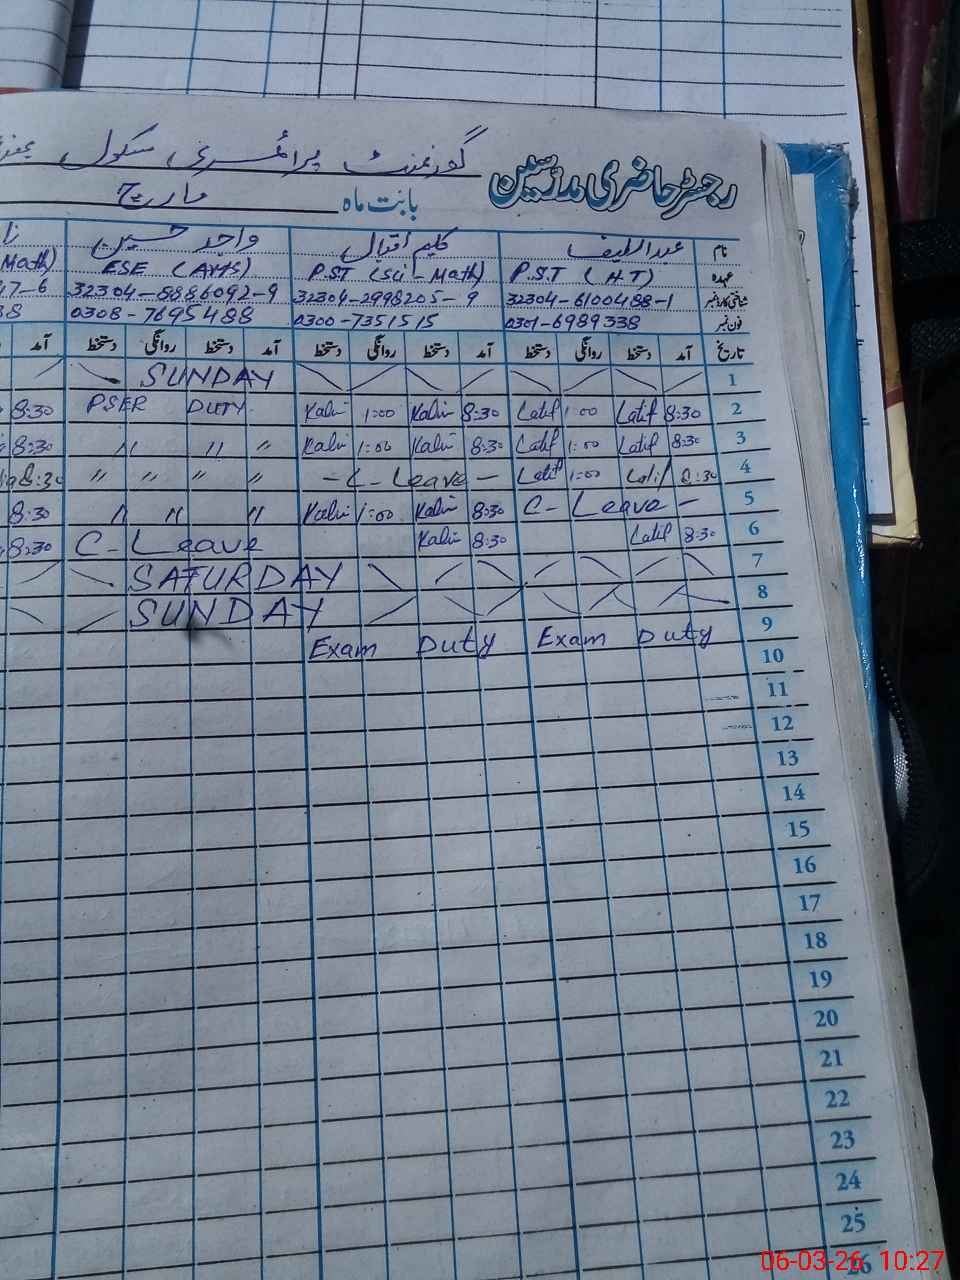 گورنمنٹ پرائمری سکول
رجسٹر حاضری مدرسین
بابت ماہ مارچ
نام عبداللطیف کلیم اقبال واجد حسین
عہدہ P.S.T (H.T) P.S.T (Sci-Math) ESE (Arts) Math)
شناختی کارڈ نمبر 32304-6100488-1 32304-2998205-9 32304-8886092-9 7-6
فون نمبر 0301-6989338 0300-7351515 0308-7695488 8
تاریخ آمد دستخط روانگی دستخط آمد دستخط روانگی دستخط آمد دستخط روانگی دستخط آمد
1 SUNDAY
2 8:30 Latif 1:00 Latif 8:30 Kalim 1:00 Kalim PSER DUTY 8:30
3 8:30 Latif 1:00 Latif 8:30 Kalim 1:00 Kalim " " " 8:30
4 8:30 Latif 1:00 Latif - C-Leave - " " " " 8:30
5 C-Leave - 8:30 Kalim 1:00 Kalim " " " 8:30
6 8:30 Latif 8:30 Kalim C-Leave 8:30
7 SATURDAY
8 SUNDAY
9 Exam Duty Exam Duty
10
11
12
13
14
15
16
17
18
19
20
21
22
23
24
25
26
06-03-26 10:27